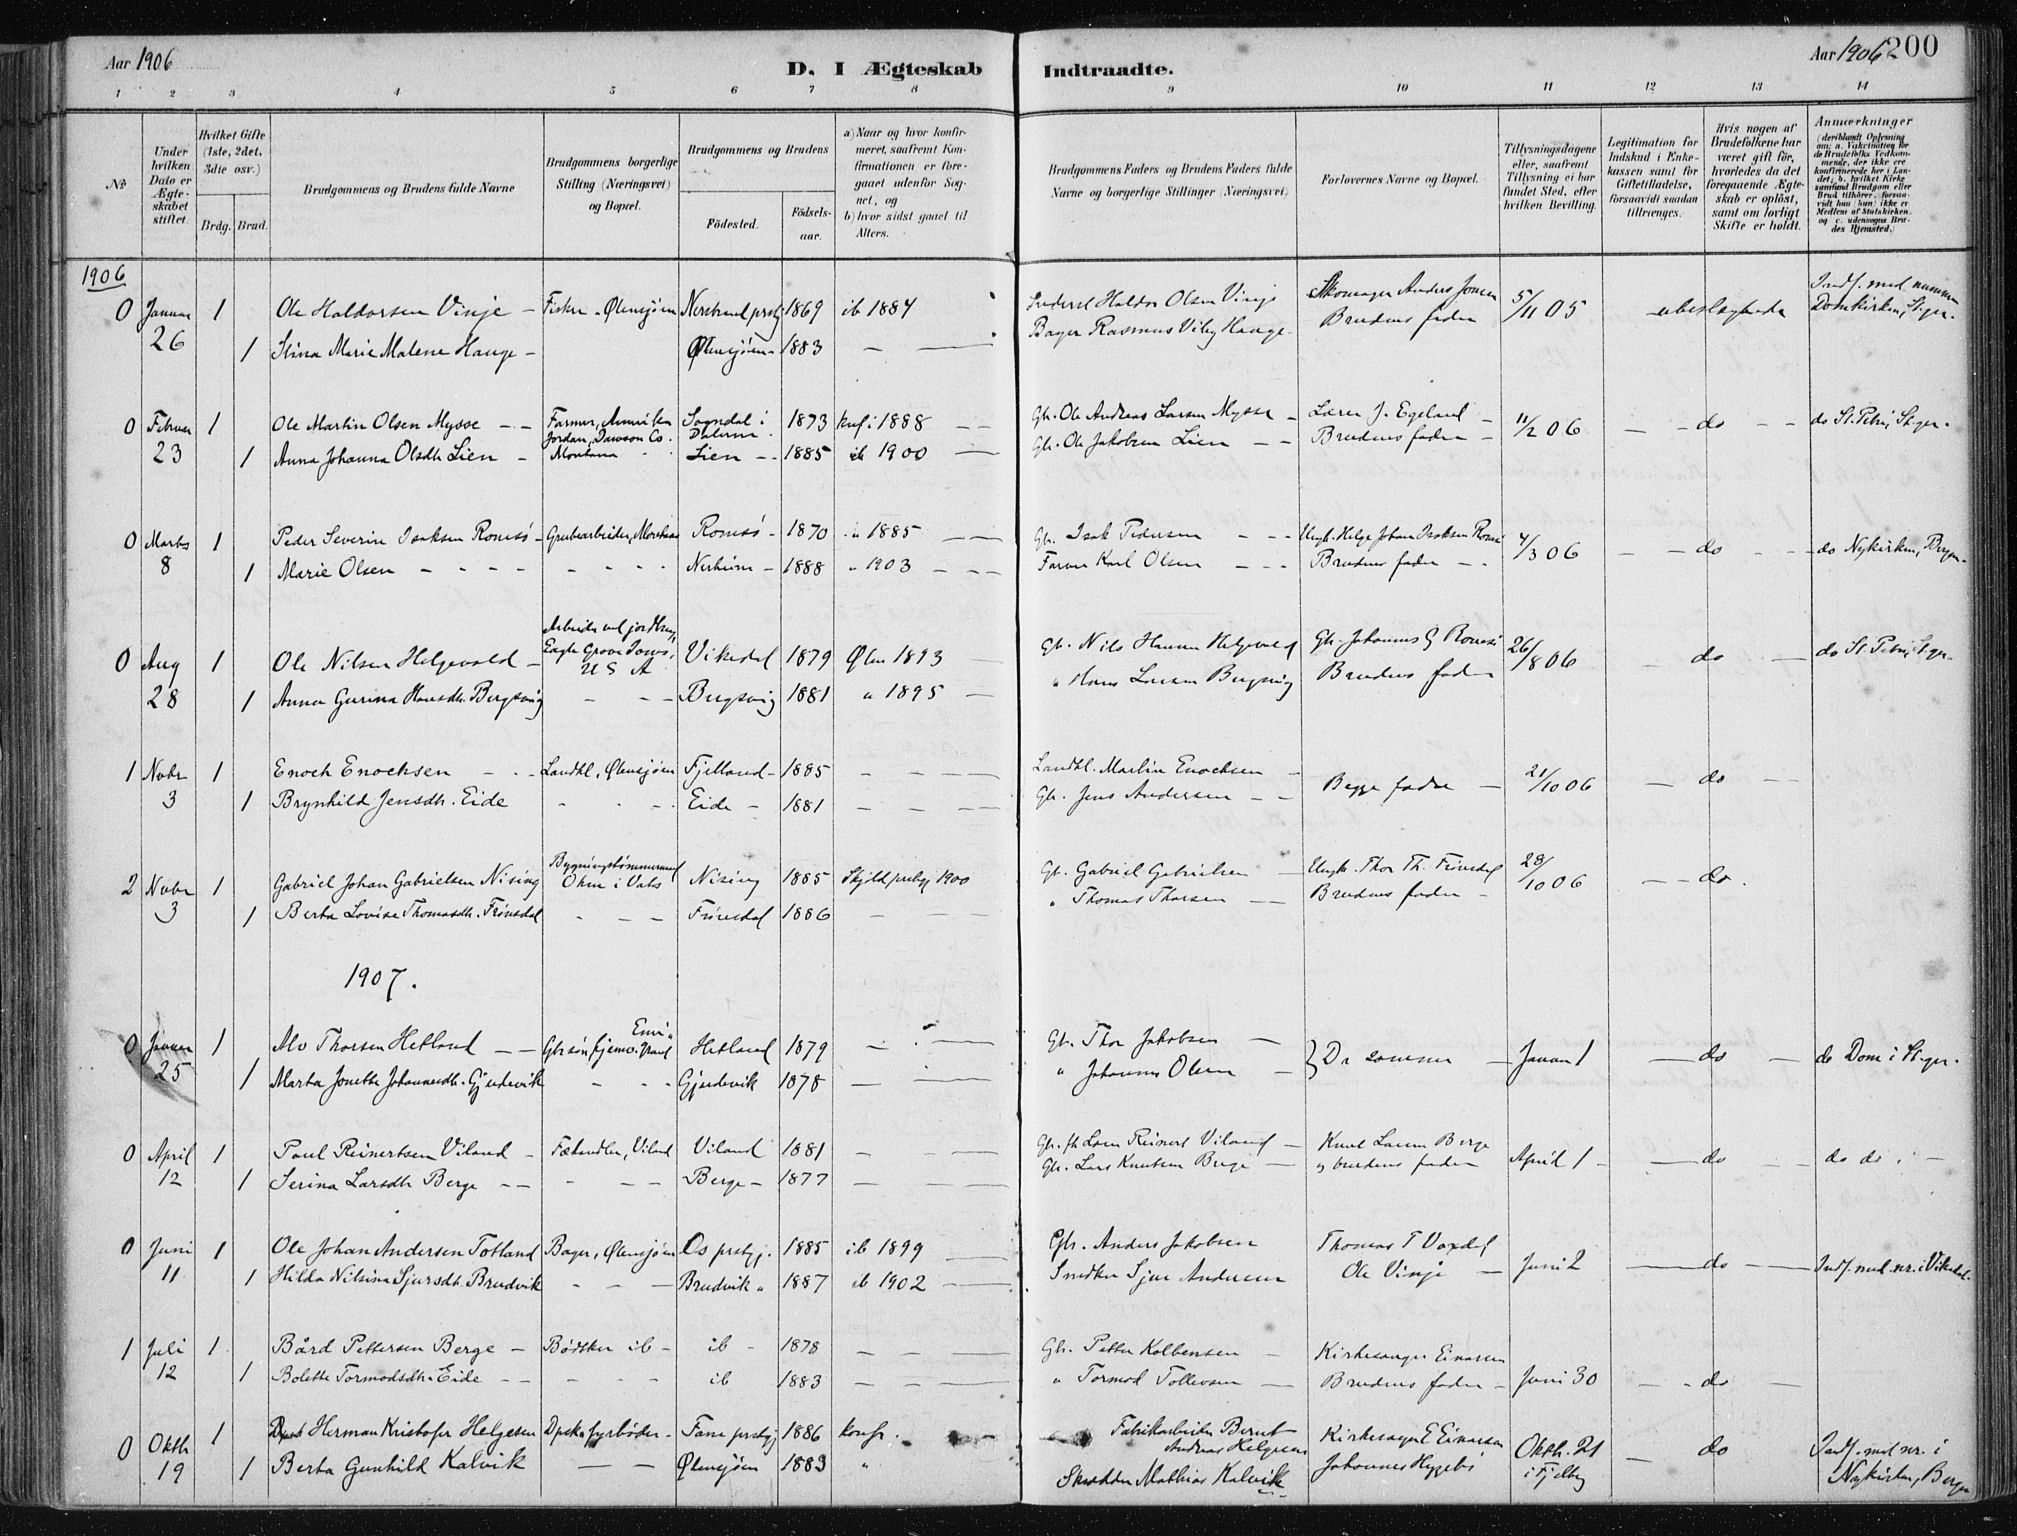 Aar 1906
D. I Ægteskab Indtraadte.
Aar 1906 200
1 2 3 4 5 6 7 8 9 10 11 12 13 14
No
Under hvilken Dato er Ægteskabet stiftet.
Hvilket Gifte (1ste, 2det, 3die osv.)
Brdg. Brud.
Brudgommens og Brudens fulde Navne
Brudgommens borgerlige Stilling (Næringsvei) og Bopæl.
Brudgommens og Brudens
Födested. Födselsaar.
a) Naar og hvor konfirmeret, saafremt Konfirmationen er foregaaet udenfor Sognet, og
b) hvor sidst gaaet til Alters.
Brudgommens Faders og Brudens Faders fulde Navne og borgerlige Stillinger (Næringsvei)
Forlovernes Navne og Bopæl.
Tillysningsdagene eller, saafremt Tillysning ei har fundet Sted, efter hvilken Bevilling.
Legitimation for Indskud i Enkekassen samt for Giftetilladelse, forsaavidt saadan tiltrænges.
Hvis nogen af Brudefolkene har været gift för, hvorledes da det foregaaende Ægteskab er oplöst, samt om lovligt Skifte er holdt.
Anmærkninger (deriblandt Oplysning om: a. Vakcination for de Brudefolks Vedkommende, der ikke ere konfirmerede her i Landet; b. hvilket Kirkesamfund Brudgom eller Brud tilhører, forsaavidt han (hun) ikke er Medlem af Statskirken, og c. udensogns Brudes Hjemsted.)
1906
0 Januar 1 Ole Haldorsen Vinje - Fisker, Ølensjøen Nerstrand prstgj 1869 ib 1884 Haldor Olsen Vinje Skomager Anders Jonsen 5/11 05 ubeslægtede Indf. med nummer
26 1 Stina Marie Malene Hauge - Ølensjøen - 1883 — Bager Rasmus Viby Hauge - Brudens fader Domkirken, St.ger.
0 Februar 1 Ole Martin Olsen Mysse - - Farmer, Amerika Sogndal i Dalerne 1873 1888 - - Gbr. Ole Andreas Larsen Mysse - Lærer J. Egeland - 11/2 06 - - do - - do St. Petri, St.ger.
Jordan, Dawson Co.
23 1 Anna Johanna Olsdtr. Lien - Montana Lien - - 1885 ib 1900 — Gbr. Ole Jakobsen Lien - - Brudens fader -
0 Marts 1 Peder Severin Isaksen Romsø - Grubearbeider, Montana Romsø - 1870 " 1885 - - Gbr. Isak Pedersen - - - Ungk. Helge Johan Isaksen Romsø 4/3 06 - - do - - do Nykirken, Bergen.
8 1 Marie Olsen - - - - - - - Nerheim - 1888 " 1903 - - - Farver Karl Olsen - - - Brudens fader - -
0 Aug 1 Ole Nilsen Helgevold - Arbeider ved jordbrug,
Eagle Grove Iowa,
U S A Vikedal 1879 Ølen 1893 - Gbr. Nils Hansen Helgevold Gbr. Johannes G Romsø 26/8 06 - do - do St. Petri, St.ger.
28 1 Anna Gurina Hansdtr. Bergsvig - - - Bergsvig 1881 " 1895 - " Hans Larsen Bergsvig Brudens fader
1 Novbr 1 Enoch Enochsen - - - Landhl, Ølensjøen Fjelland - 1885 - - - Landhl. Martin Enochsen - Begge fædre - 21/10 06 - do -
3 1 Brynhild Jensdtr. Eide - - - Eide - 1881 - - - Gbr. Jens Andersen - -
2 Novbr 1 Gabriel Johan Gabrielsen Nising Bygningstømmermand
Ølen i Vats Nising 1885 Skjold prstgj 1900 Gb. Gabriel Gabrielsen - Ungk. Thor Th. Frønsdal 28/10 06 - - do.
3 1 Berta Lovise Thomasdtr. Frønsdal - - - Frønsdal 1886 - - - " Thomas Thorsen - - Brudens fader -
1907.
0 Januar 1 Alv Thorsen Hetland - - Gbr søn, hjemv. Hetland 1879 - - - Gbr. Thor Jakobsen - } De samme - Januar 1 - do - do Dom i St.ger.
25 1 Marta Jonette Johannesdtr. Gjerdevik - - - Gjerdevik 1878 - - - " Johannes Olsen -
0 April 1 Paul Reinertsen Viland - Fæhandler, Viland Viland 1881 - - - Gbr. Reinert Viland - Knut Larsen Berge April 1 - - do - do do -
12 1 Serina Larsdtr. Berge - - - - - Berge - 1877 - - - Gbr. Lars Knutsen Berge - og brudens fader
0 Juni 1 Ole Johan Andersen Totland Bager, Ølensjøen Os prstgj. 1885 ib 1899 - Gbr. Anders Jakobsen Thomas T Vaxdal Juni 2 - do - Indf. med nr. i Vikedal.
11 1 Hilda Nilsina Sjursdtr. Brudvik - - - Brudvik " 1887 ib 1902 - Snedker Sjur Andersen Ole Vinje -
1 Juli 1 Bård Pettersen Berge - Bødker ib - ib - 1878 - - - Gbr. Petter Kolbensen - Kirkesanger Einarsen Juni 30 - - do -
12 1 Bolette Tormodsdtr. Eide - - - - - ib 1883 - - - " Tormod Tollevsen - Brudens fader -
0 Oktbr 1 Herman Kristofer Helgesen Dpsk. fyrbøder - Fane prstgj 1886 konfr. Fabrikarbeider Bernt
Andreas Helgesen Kirkesanger E Einarsen Oktbr. 21 - do Indf. med nr. i
19 1 Berta Gunhild Kalvik - - Ølensjøen 1883 " Skrædder Mathias Kalvik Johannes Hyggebø i Fjelberg Nykirken, Bergen